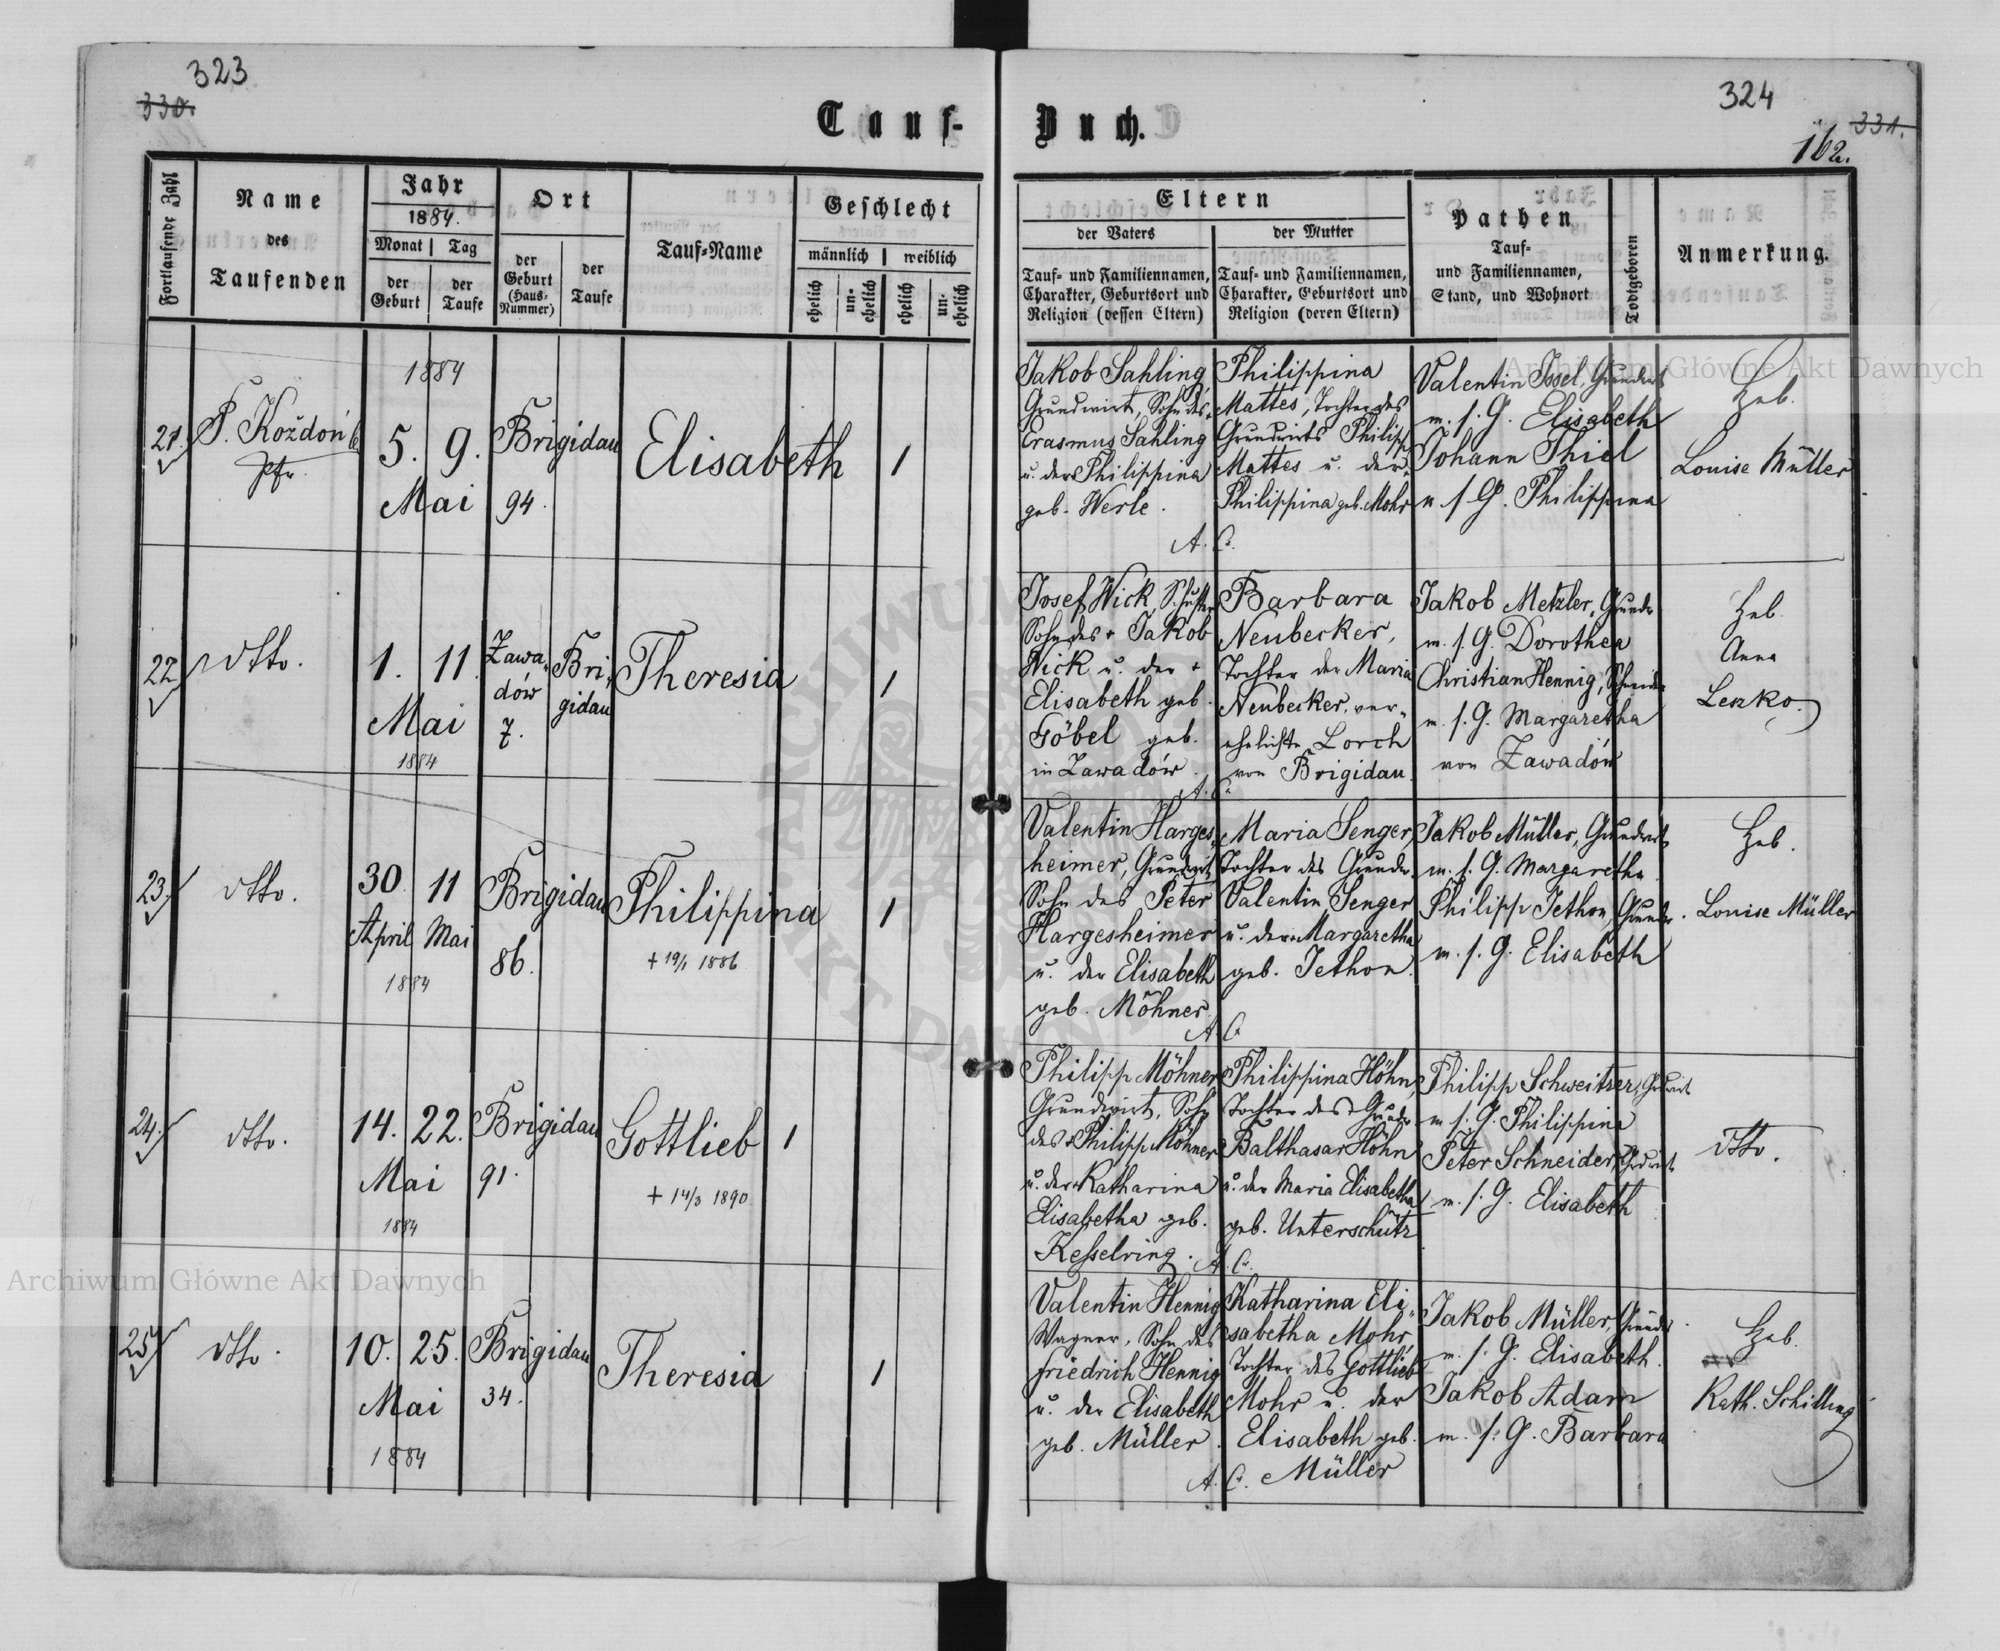 323
330.
Tauf-
Fortlaufende Zahl
Name
des
Taufenden
Jahr
1884.
Monat
Tag
der
Geburt
der
Taufe
Ort
der
Geburt
(Haus-
Nummer)
der
Taufe
Tauf-Name
Geschlecht
männlich
weiblich
ehelich
un-
ehelich
ehelich
un-
ehelich
21.
P. Koždoń
Pfr.
1884
5. 9.
Mai
Brigidau
94.
Elisabeth
1
22
dtto.
1. 11.
Mai
1884
Zawa-
dów
7.
Bri-
gidau
Theresia
1
23.
dtto.
30. 11
April Mai
1884
Brigidau
86.
Philippina
+ 19/1 1886
1
24.
dtto.
14. 22.
Mai
1884
Brigidau
91.
Gottlieb
+ 14/3 1890
1
25
dtto.
10. 25.
Mai
1884
Brigidau
34.
Theresia
1
324
331.
162.
Buch.
Eltern
der Vaters
Tauf- und Familiennamen,
Charakter, Geburtsort und
Religion (dessen Eltern)
der Mutter
Tauf- und Familiennamen,
Charakter, Geburtsort und
Religion (deren Eltern)
Pathen
Tauf-
und Familiennamen,
Stand, und Wohnort
Todtgeboren
Anmerkung.
Jakob Sahling,
Grundwirt, Sohn des +
Erasmus Sahling
u. der Philippina
geb. Werle.
Philippina
Mattes, Tochter des
Grundwirts Philipp
Mattes u. der
Philippina geb. Mohr
A. C.
Valentin Issel, Grundwirt
m. s. G. Elisabeth
Johann Thiel
m. s. G. Philippina
Heb.
Louise Müller
Josef Wick, Schuster
Sohn des + Jakob
Wick u. der +
Elisabeth geb.
Göbel geb.
in Zawadów.
Barbara
Neubecker,
Tochter der Maria
Neubecker, ver-
ehelichte Lorch
von Brigidau.
A. C.
Jakob Metzler, Grundw
m. s. G. Dorothea
Christian Hennig, Schneider
m. s. G. Margaretha
von Zawadów
Heb.
Anna
Lenko.
Valentin Harges-
heimer, Grundwirt
Sohn des Peter
Hargesheimer
u. der Elisabeth
geb. Möhner
Maria Senger,
Tochter des Grundw.
Valentin Senger
u. der + Margaretha
geb. Jethon.
A. C.
Jakob Müller, Grundwirt
m. s. G. Margaretha
Philipp Jethon Grundw.
m. s. G. Elisabeth
Heb.
Louise Müller
Philipp Möhner,
Grundwirt, Sohn
des + Philipp Möhner
u. der + Katharina
Elisabetha geb.
Kesselring.
Philippina Höhn,
Tochter des + Grundw
Balthasar Höhn
u. der Maria Elisabetha
geb. Unterschütz
A. C.
Philipp Schweitzer, Grdwirt
m. s. G. Philippina
Peter Schneider, Grdwirt
m. s. G. Elisabeth
dtto.
Valentin Hennig
Wagner, Sohn des
Friedrich Hennig
u. der Elisabeth
geb. Müller.
Katharina Eli-
sabetha Mohr,
Tochter des Gottlieb
Mohr u. der
Elisabeth geb.
Müller
A. C.
Jakob Müller, Grundw.
m. s. G. Elisabeth.
Jakob Adam
m. s. G. Barbara
Heb.
Kath. Schilling
Archiwum Główne Akt Dawnych
Archiwum Główne Akt Dawnych